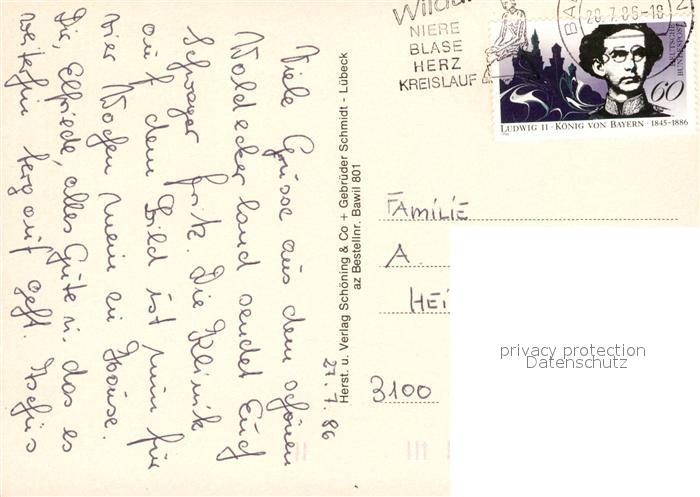 27.7.86
Viele Grüsse aus dem schönen
Waldecker Land sendet Euch
Schwager Fritz. Die Klinik
auf dem Bild ist nun für
vier Wochen mein zu Hause.
Dir, Elfriede, alles Gute u. das es
weiterhin bergauf geht. Tschüs
Herst. u. Verlag Schöning & Co + Gebrüder Schmidt - Lübeck
az Bestellnr. Bawil 801
NIERE
BLASE
HERZ
KREISLAUF
28.7.86-18
DEUTSCHE
BUNDESPOST
60
LUDWIG II · KÖNIG VON BAYERN · 1845-1886
FAMILIE
A.
HEI
3100
privacy protection
Datenschutz